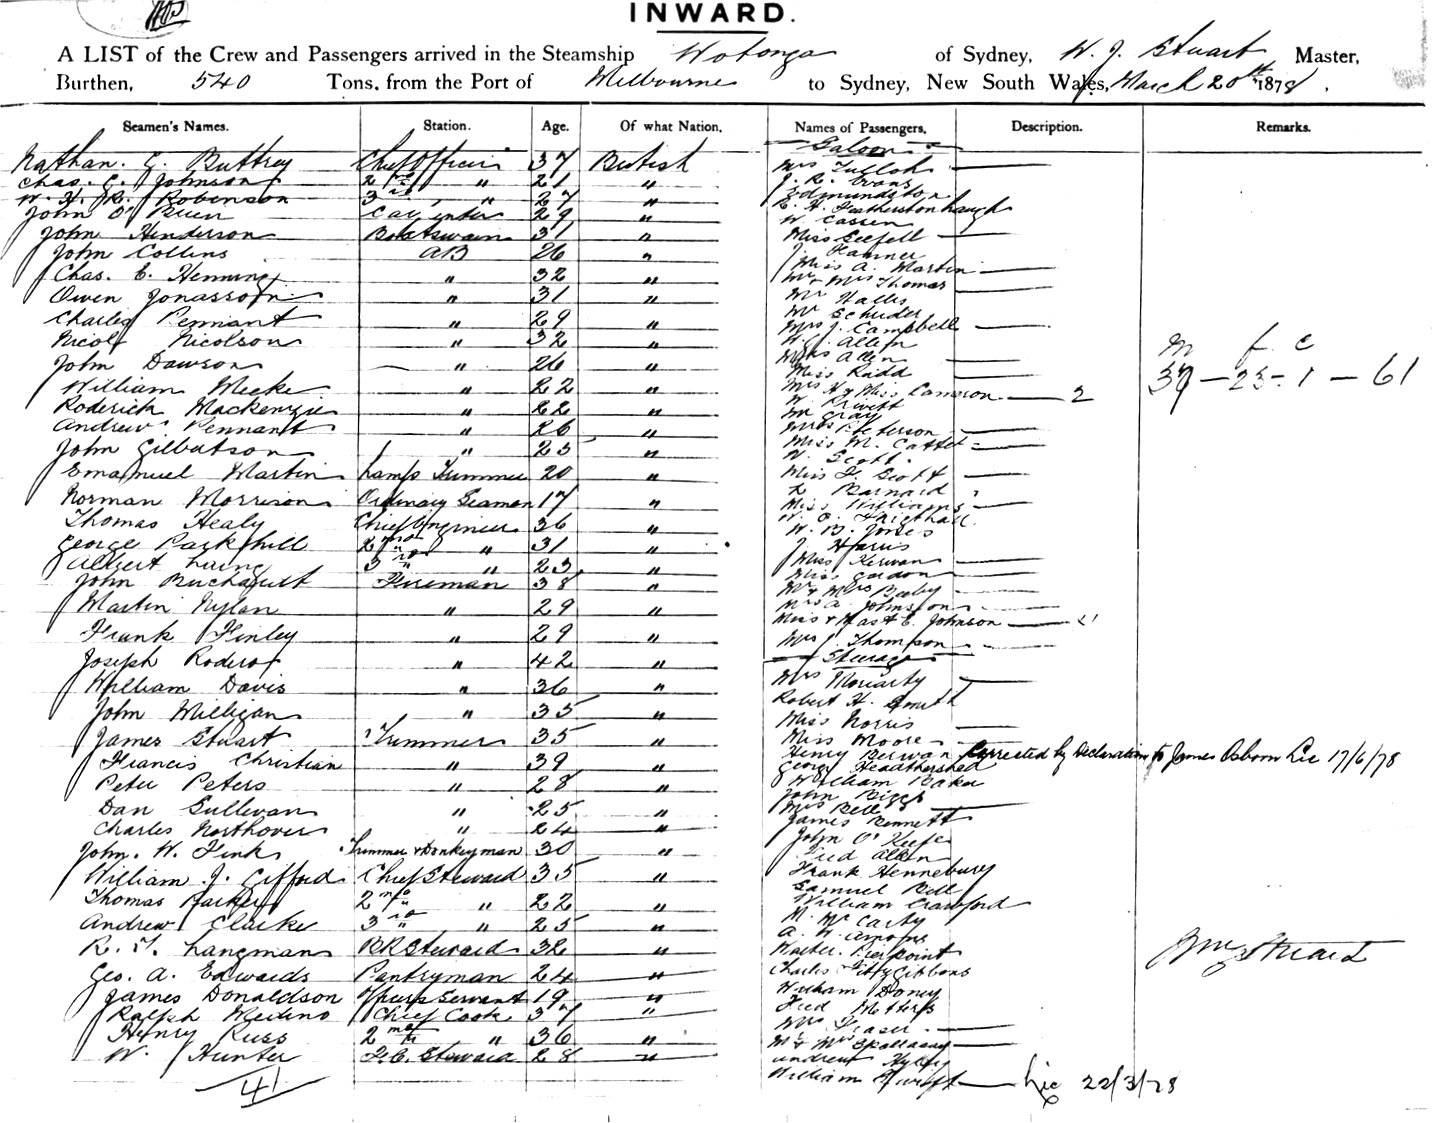 INWARD.
A LIST of the Crew and Passengers arrived in the Steamship Wotonga of Sydney, W. J. Stuart Master,
Burthen, 540 Tons, from the Port of Melbourne to Sydney, New South Wales, March 20th 1878.
Seamen's Names. Station. Age. Of what Nation. Names of Passengers. Description. Remarks.
Nathan. G. Buttrey Chief Officer 37 British
Chas. G. Johnson 2nd " 21 "
W. H. R. Robinson 3rd " 27 "
John O'Brien Carpenter 29 "
John Henderson Boatswain 31 "
John Collins AB 26 "
Chas. E. Henning " 32 "
Owen Jonasson " 31 "
Charles Pennant " 29 "
Nicol Nicolson " 32 "
John Dawson " 26 "
William Meeke " 22 "
Roderick Mackenzie " 22 "
Andrew Pennant " 26 "
John Gilbertson " 25 "
Emanuel Martin Lamp Trimmer 20 "
Norman Morrison Ordinary Seaman 17 "
Thomas Healy Chief Engineer 36 "
George Parkhill 2nd " 31 "
Albert Laing 3rd " 23 "
John Fireman 38 "
Martin Nylan " 29 "
Frank Finley " 29 "
Joseph Roderos " 42 "
William Davis " 36 "
John Milligan " 35 "
James Stuart Trimmer 35 "
Francis Christian " 39 "
Peter Peters " 28 "
Dan Sullivan " 25 "
Charles Northover " 24 "
John. W. Fink Trimmer & Donkeyman 30 "
William J. Gifford Chief Steward 35 "
Thomas Parker 2nd " 22 "
Andrew Clarke 3rd " 25 "
R. T. Langman BR Steward 32 "
Geo. A. Edwards Pantryman 24 "
James Donaldson Officers Servant 19 "
Ralph Medino Chief Cook 37 "
Henry Russ 2nd " 36 "
W. Hunter F.C. Steward 28 "
41
Saloon
Mrs Tulloh
J. R. Evans
Edmundston
R. H. Featherstonhaugh
W. Cassen
Miss Seefell
J Hamner
Miss A. Martin
Mr & Mrs Thomas
Mr Halles
Mr Schuder
Mrs J. Campbell
W. J. Allen
Miss Allen
Miss Rudd
Mrs H & Miss Cameron 2
W. Privett
Mr Gray
Mrs Peterson
Miss M. Catter
W. Scott
Miss F. Scott
L Barnard
Miss Williams
W. O.
W. B. Jones
J Harris
Miss Kerwan
Miss Gordon
Mr & Mrs Beeby
Mrs A. Johnston
Miss & Mast E. Johnson
Mrs J. Thompson
Steerage
Mrs Moriarty
Robert H. Smith
Miss Norris
Miss Moore
Henry Berwan Corrected by Declaration to James Osborn Lie 17/6/78
George Headthershed
William Baker
John Biggs
Mrs Bell
James Bennett
John O'Keefe
Fred Allen
Frank Hennebury
Samuel Bell
William Crawford
M. McCarty
A. W. Amons
Walter Pierpoint
Charles Fitzgibbons
William Doney
Fred Metters
Mrs Fraser
M & Mrs Spollacey
Andrew Hyley
William Lie 22/3/78
m f c
37 - 23 - 1 - 61
Wm J Stuart